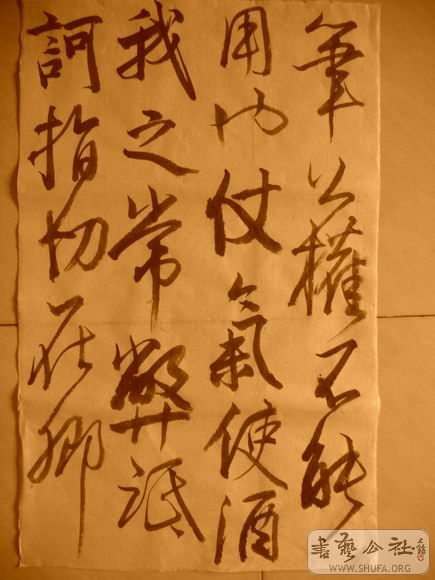 筆公權不能
用仗氣使酒
我之常弊詆
訶指切在鄉
書藝公社
WWW.SHUFA.ORG